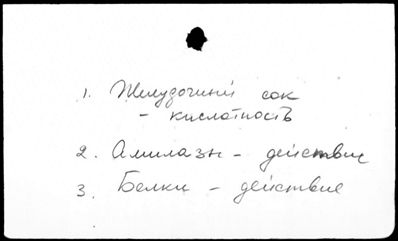 1. Желудочный сок
- кислотность
2. Амилазы - действие
3. Белки - действие